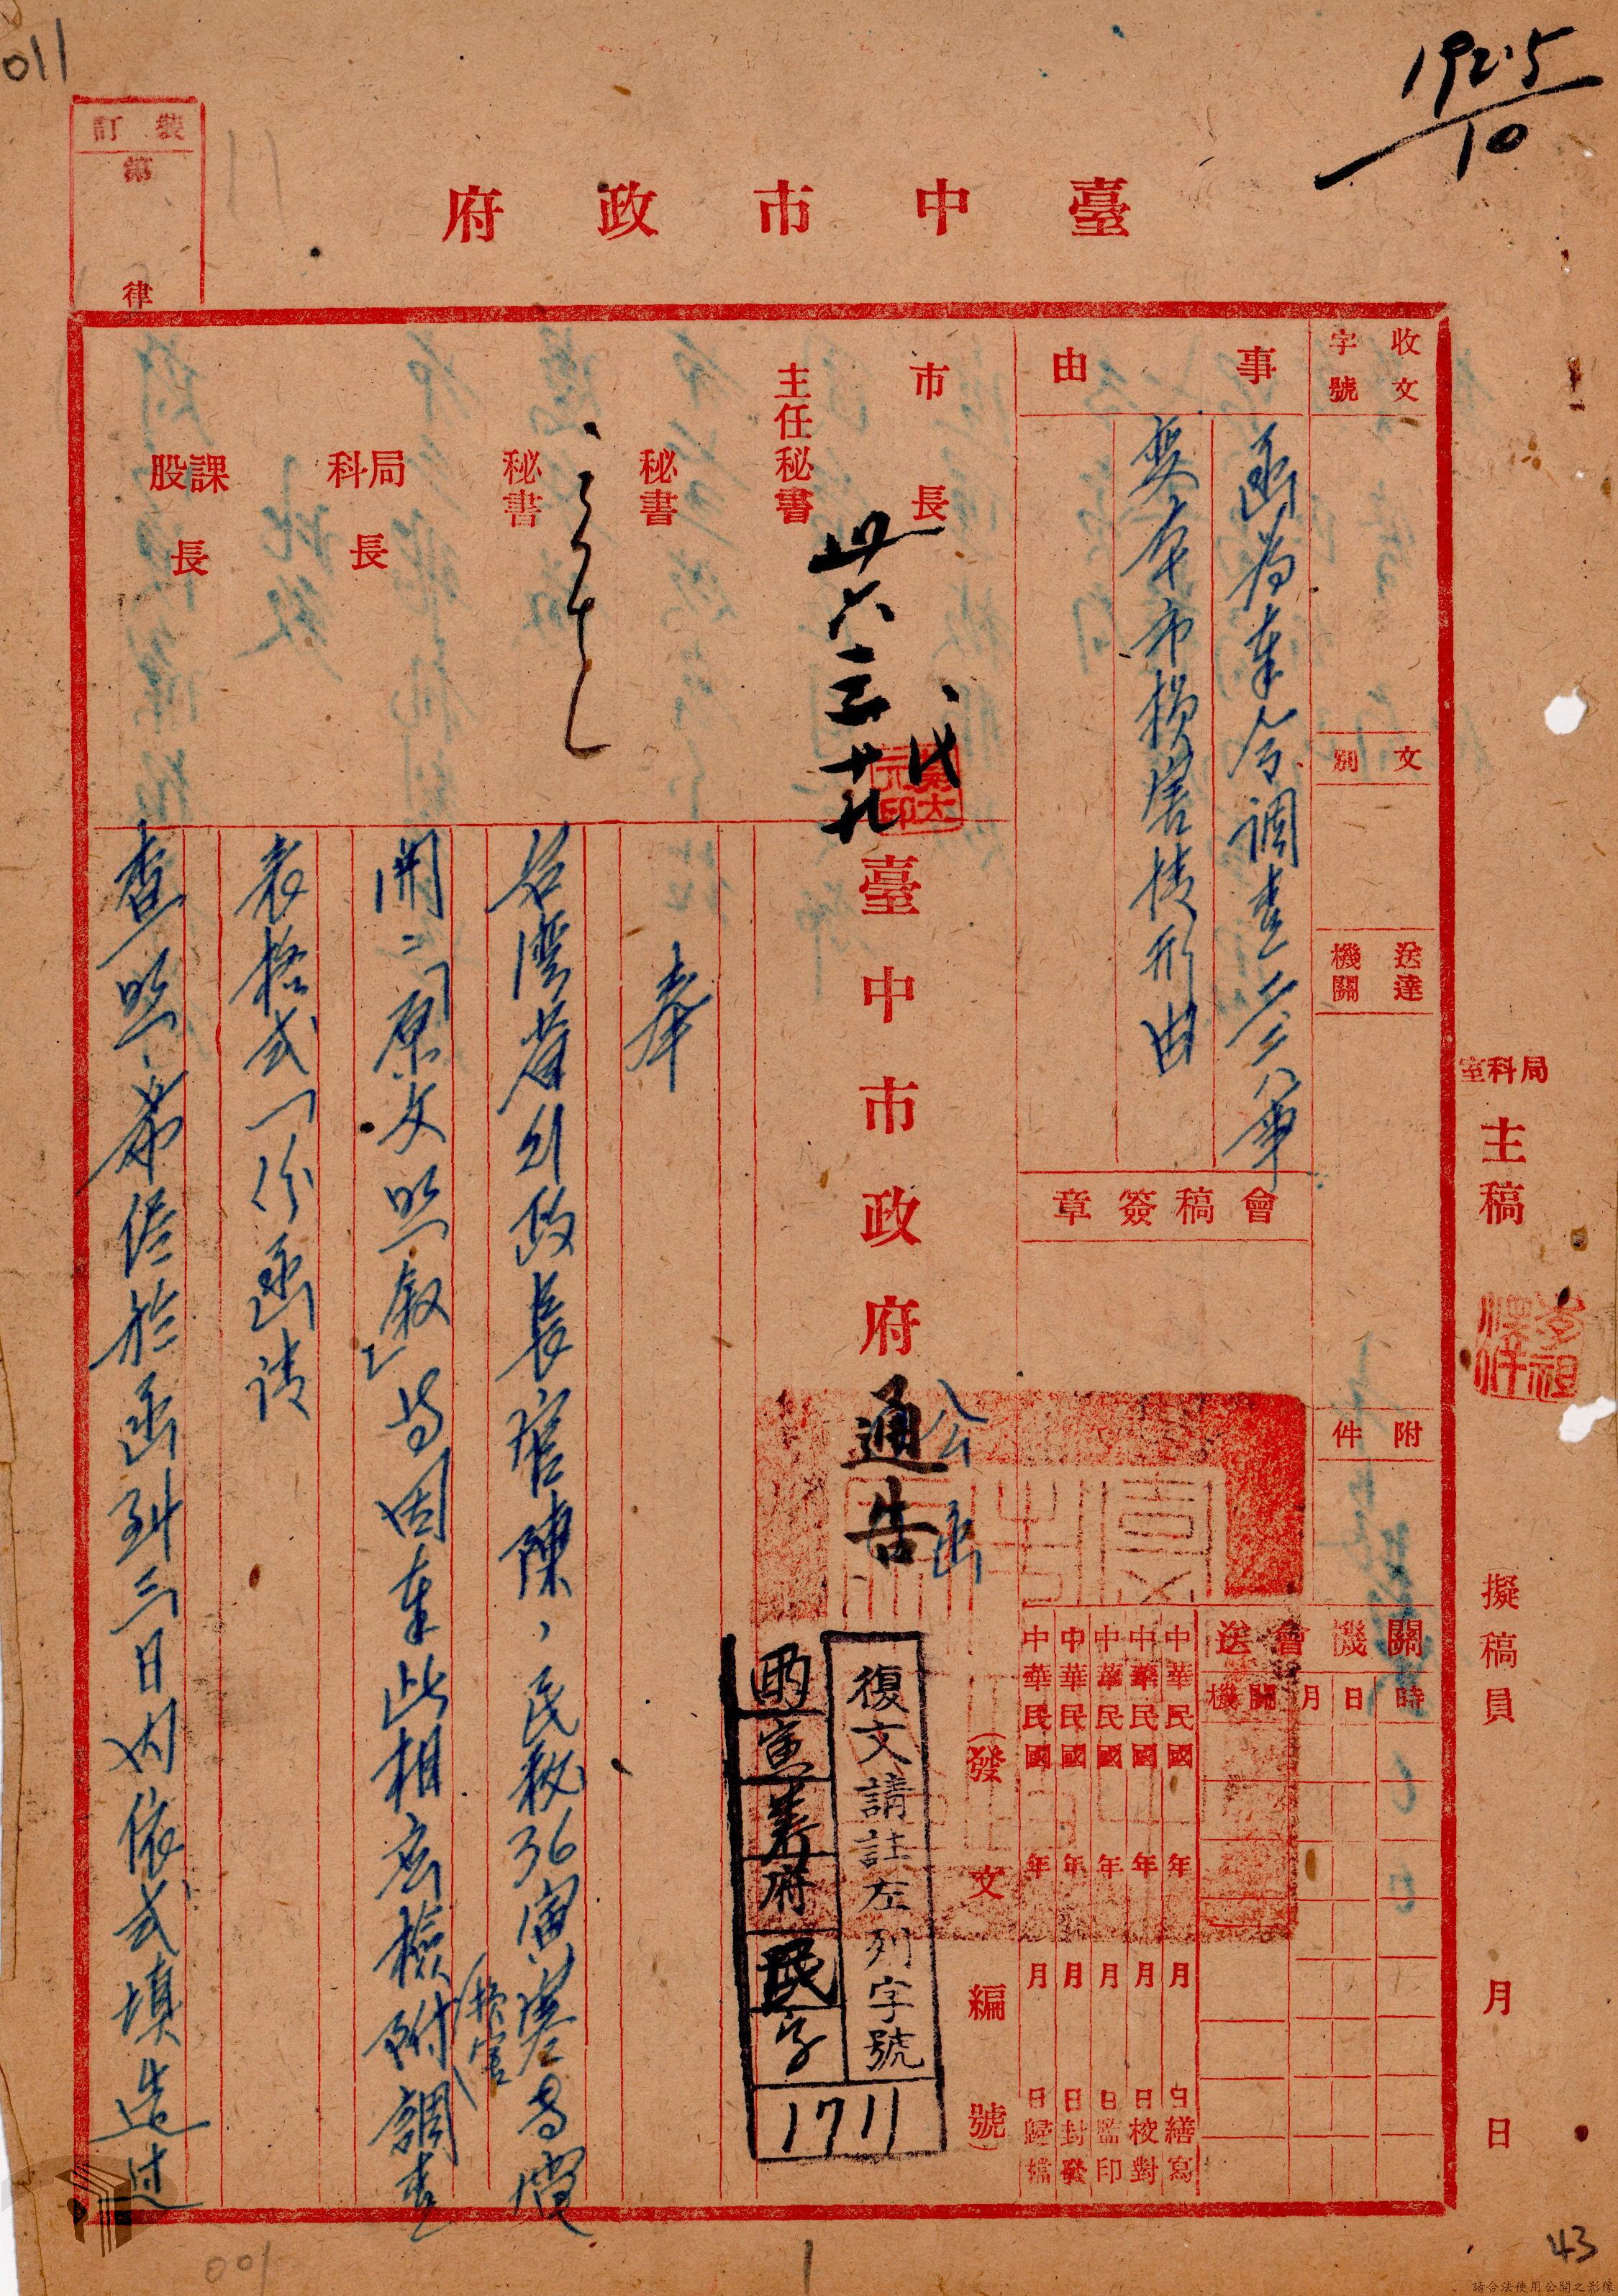 011
192.5
10
裝訂
第
律
臺中市政府
收文
字號
文別
送達
機關
附件
事由
函為奉令調查二二八事
變本市損害情形由
會稿簽章
市長
代
主任秘書
卅六 三 廿九
秘書
秘書
局科長
課股長
局科室
主稿
擬稿員
月
日
關機會送
時
日
月
機關
中華民國 年 月 日繕寫
中華民國 年 月 日校對
中華民國 年 月 日監印
中華民國 年 月 日封發
中華民國 年 月 日歸檔
(發文編號)
臺中市政府
通告
公函
復文請註左列字號
寅
府
民
字
1711
奉
台灣省行政長官陳、民秘36寅
電
開:「原文照敘」等因奉此相應檢附調查
(損害)
表格式一份函請
查照、希
於函到三日內依式填造过
43
001
1
請合法使用公開之影像